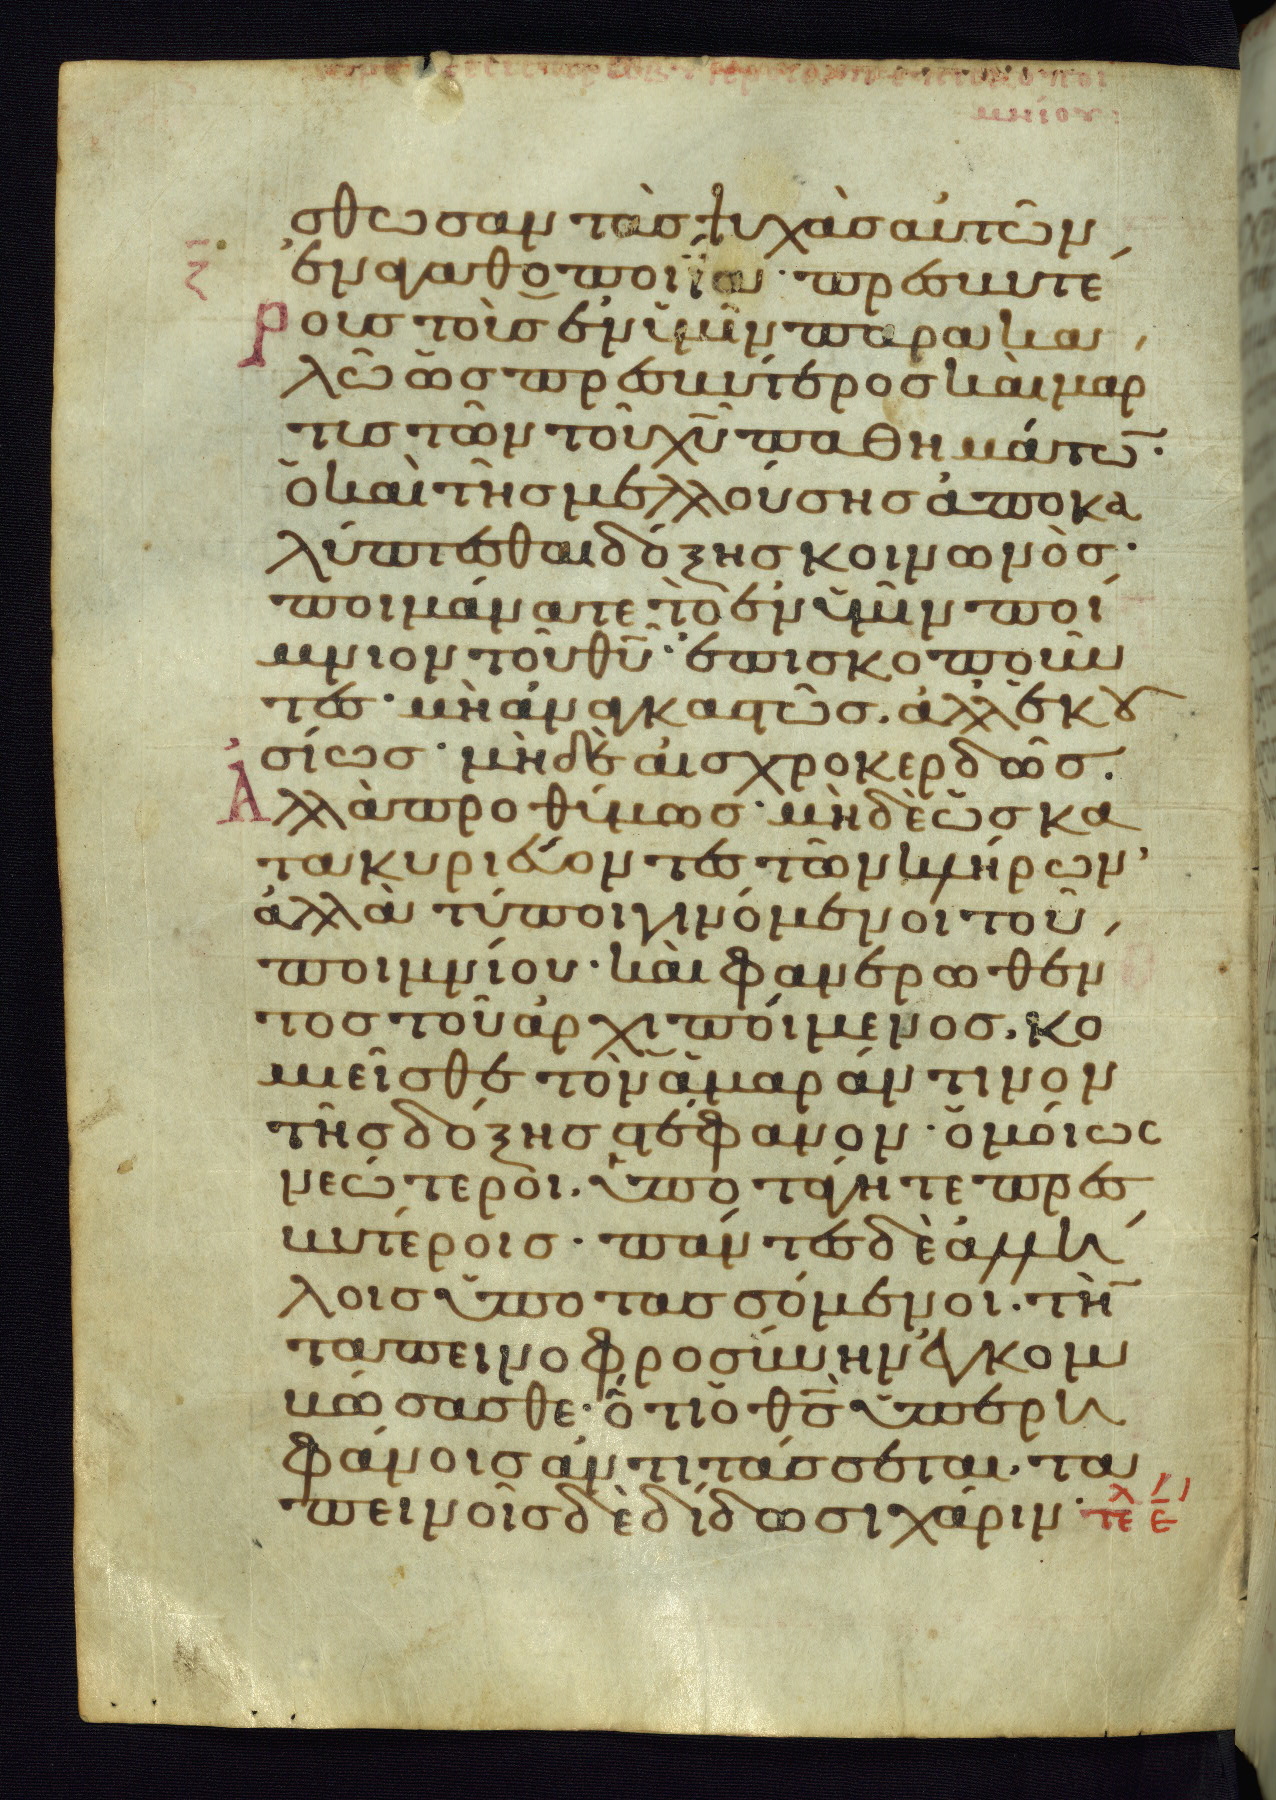 σθωσαν τὰσ ψυχὰσ αὐτῶν
ἐν ἀγαθοποιΐα· πρεσβυτέ
ροισ τοῖσ ἐν ὑμῖν παρακα
λῶ ὡσ πρεσβύτεροσ καὶ μαρ
τισ τῶν τοῦ χῦ παθημάτω̄·
ὁ καὶ τῆσ μελλούσησ ἀποκα
λύπτεσθαι δόξησ κοινωνὸσ·
ποιμάνατε τὸ ἐν ὑμῖν ποί
μνιον τοῦ θῦ· ἐπισκοποῦν
τεσ· μὴ ἀναγκαστῶσ. ἀλλ' ἑκου
σίωσ· μὴδὲ αἰσχροκερδῶσ.
Ἀλλὰ προθύμωσ· μὴδὲ ὡσ κα
τακυριεύοντεσ τῶν κλήρων,
ἀλλὰ τύποι γινόμενοι τοῦ
ποιμνίου· καὶ φανερωθέν
τοσ τοῦ ἀρχιποίμενοσ. κο
μεῖσθε τὸν ἀμαράντινον
τῆσ δόξησ στέφανον· ὁμοίωσ
νεώτεροι. ὑποτάγητε πρεσ
βυτέροισ· πάντεσ δὲ ἀλλή
λοισ ὑποτασσόμενοι. τὴ̄
ταπεινοφροσύνην ἐγκομ
βώσασθε· ὅτι ὁ θσ̄ ὑπερη
φάνοισ ἀντιτάσσεται. τα
πεινοῖσ δὲ δίδωσι χάριν· τελ